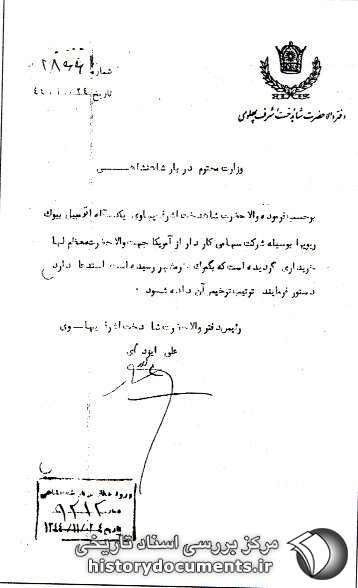 دفتر والاحضرت شاهدخت اشرف پهلوی
شماره
تاریخ
وزارت محترم دربار شاهنشاهی
برحسب فرموده والاحضرت شاهدخت اشرف پهلوی یکدستگاه اتومبیل بیوک
ریویرا بوسیله شرکت سهامی کار دار از آمریکا جهت والاحضرت معظم لها
خریداری گردیده است که بگمرک خرمشهر رسیده است استدعا دارد
دستور فرمایند ترتیب ترخیص آن داده شود .
رئیس دفتر والاحضرت شاهدخت اشرف پهلوی
علی ایزدی
ورود بدفتر دربار شاهنشاهی
شماره
تاریخ ۱۳۴۴/۱۱/۰۲
مرکز بررسی اسناد تاریخی
historydocuments.ir